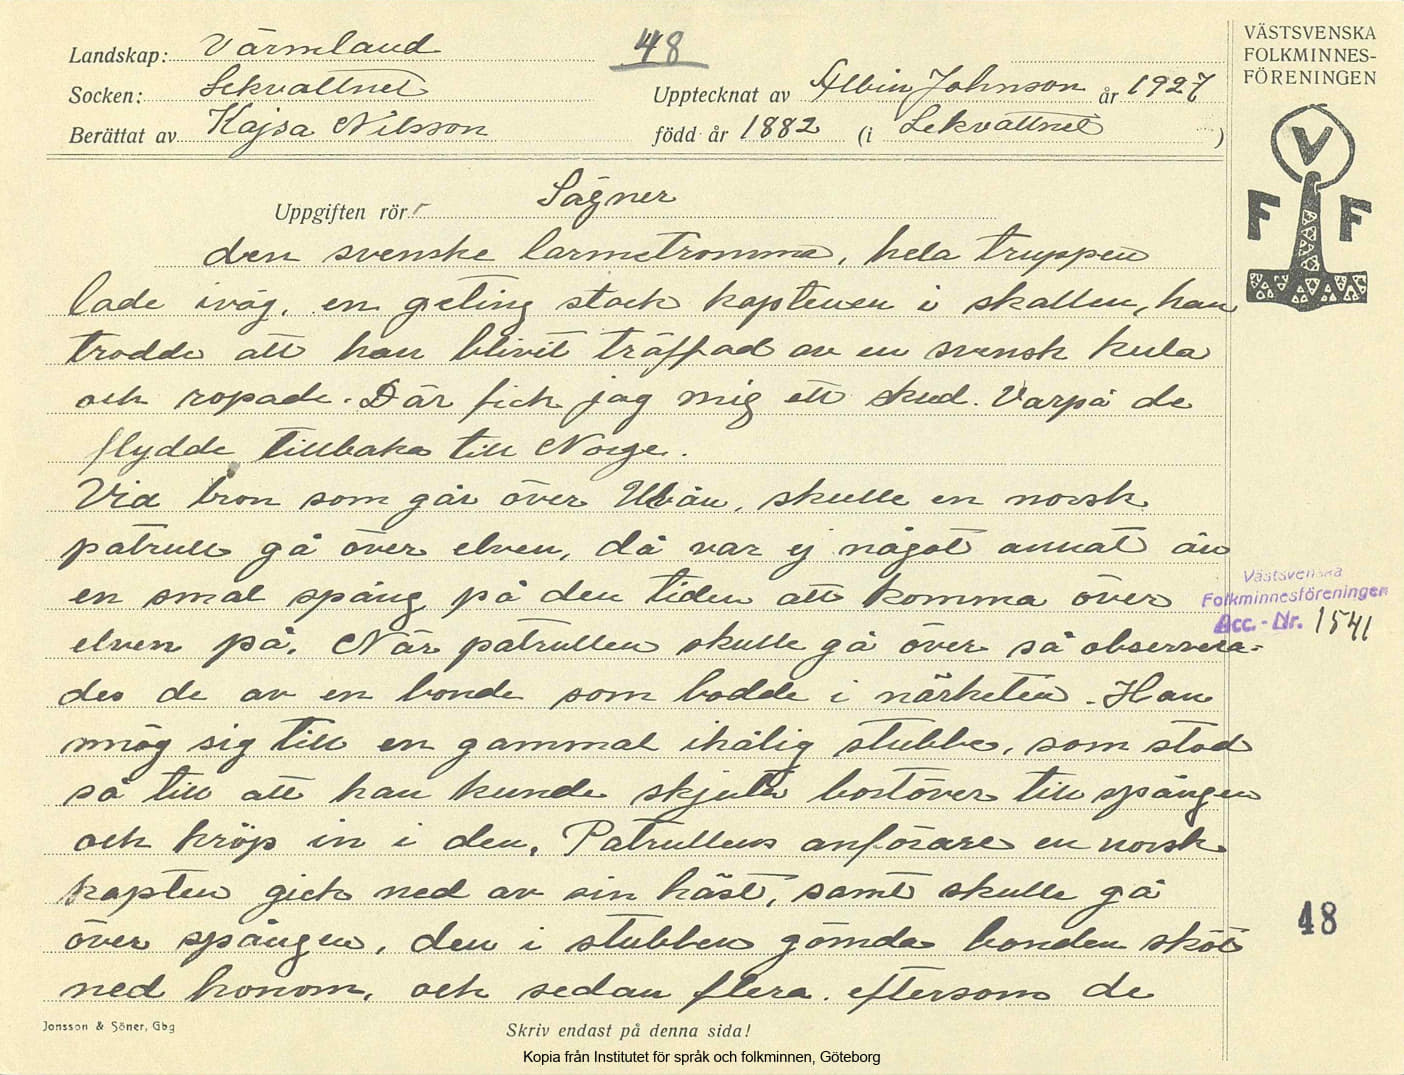 VÄSTSVENSKA
FOLKMINNES-
FÖRENINGEN
Landskap: Värmland
48
Socken: Lekvattnet
Upptecknat av Albin Johnson år 1927
Berättat av Kajsa Nilsson
född år 1882 (i Lekvattnet )
V
F F
Uppgiften rör Sägner
den svenske larmtromma, hela truppen
lade iväg, en geting stack kaptenen i skallen, han
trodde att han blivit träffad av en svensk kula
och ropade. Där fick jag mig ett skud. Varpå de
flydde tillbaka till Norge.
Vid bron som går över, skulle en norsk
patrull gå över elven, då var ej något annat än
en smal spång på den tiden att komma över
elven på. När patrullen skulle gå över så observera-
des de av en bonde som bodde i närheten. Han
smög sig till en gammal ihålig stubbe, som stod
så till att han kunde skjuta bortöver till spången
och kröp in i den. Patrullens anförare en norsk
kapten gick ned av sin häst, samt skulle gå
över spången, den i stubben gömda bonden sköt
ned honom, och sedan flera. eftersom de
Västsvenska
Folkminnesföreningen
Acc.-Nr. 1541
48
Jonsson & Söner, Gbg
Skriv endast på denna sida!
Kopia från Institutet för språk och folkminnen, Göteborg